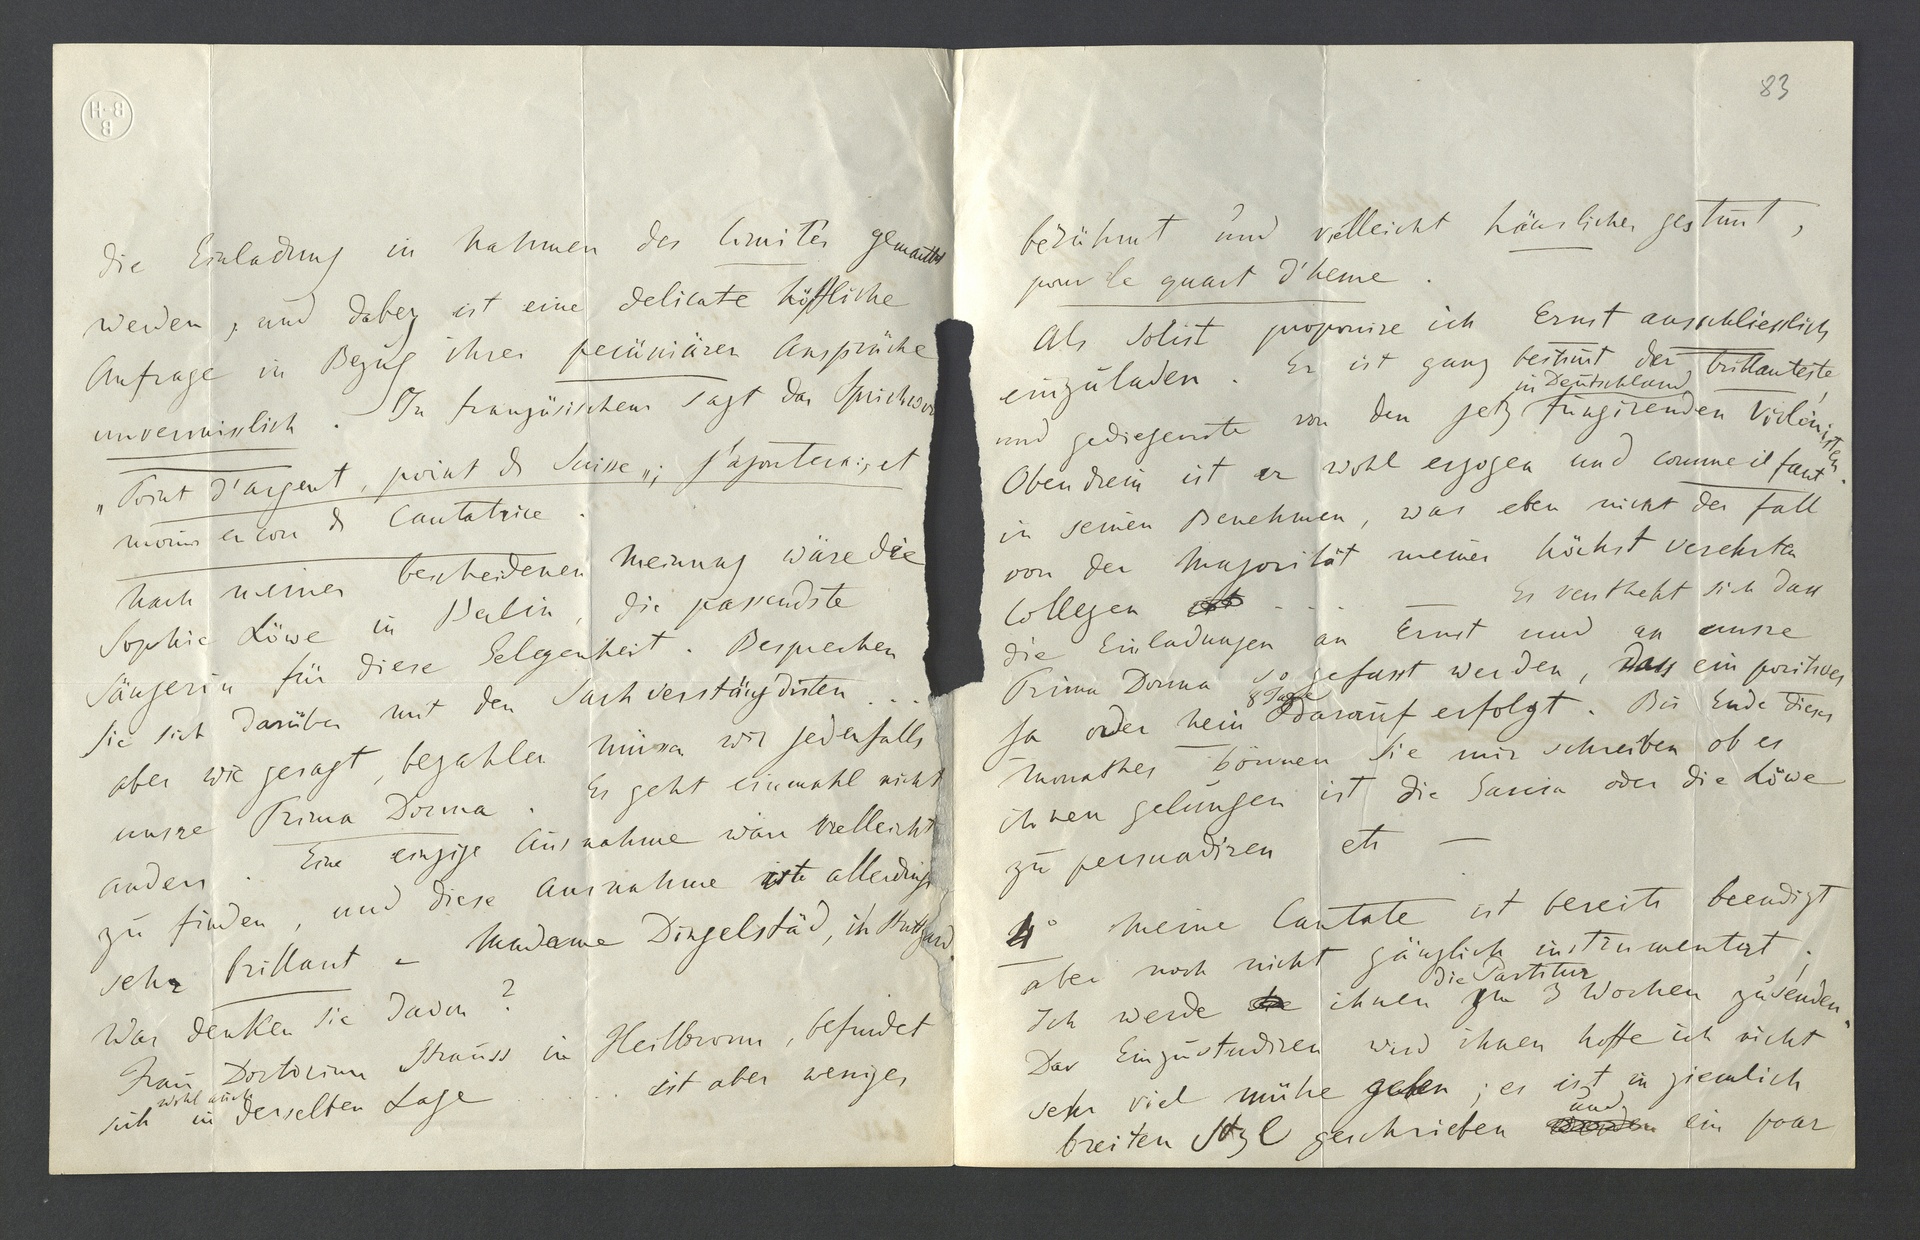 die Einladung in Nahmen des Comités gemacht
werden, und dabey ist eine delicate höffliche
Anfrage in Bezug ihrer pecüniären Ansprüche
unvermisslich. In französischem sagt das Sprichwor
„Point d'argent, point de Suisse„; j'ajouterai; et
moins encore de Cantatrice.
Nach meiner bescheidenen Meinung wäre die
Sophie Löwe in Berlin, die passendste
Sängerin für diese Gelegenheit. Besprechen
Sie sich darüber mit den Sachverständisten ...
aber wie gesagt, bezahlen müssen wir jedenfalls
unsre Prima Donna. Es geht einmahl nicht
anders. Eine einzige Ausnahme wäre vielleicht
zu finden, und diese Ausnahme ist allerdings
sehr brillant – Madame Dingelstäd, in Stuttgard.
Was denken Sie davon?
Frau Doctorinn Strauss in Heilbronn, befindet
sich wohl auch in derselben Lage ..... ist aber weniger
83
berühmt und villeicht häuslicher gestimt,
pour le quart d'heure.
Als Solist proponire ich Ernst ausschliesslich
einzuladen. Er ist ganz bestimt der brillanteste,
und gediegenste von den jetz in Deutschland fungirenden Violinisten.
Obendrein ist er wohl erzogen und comme il faut
in seinen Benehmen, was eben nicht der fall
von der Majorität meiner höchst verehrten
Collegen ... — Es versteht sich dass
die Einladungen an Ernst und an unsre
Prima Donna so gefasst werden, dass ein positives
Ja oder Nein 8 Tage darauf erfolgt. Bis Ende dieses
Monathes – können Sie mir schreiben ob es
ihnen gelungen ist die oder die Löwe
zu persuadiren etc —
4° Meine Cantate ist bereits beendigt
aber noch nicht gänzlich instrumentirt;
Ich werde ihnen die Partitur in 3 Wochen zusenden.
Das Einzustudiren wird ihnen hoffe ich nicht
sehr viel mühe geben; es ist in ziemlich
breiten Styl geschrieben und ein paar